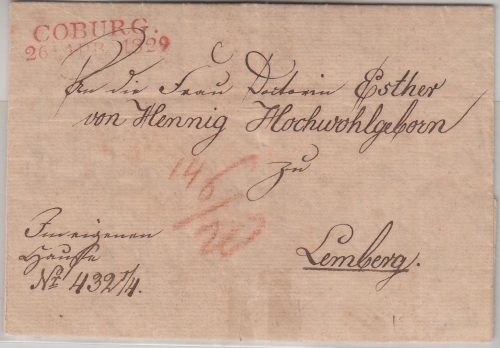 COBURG.
26 APR. 1829
An die Frau Doctorin Esther
von Hennig Hochwohlgeborn
zu
146/
Lemberg.
Im eigenen
Hause
Nr 432 1/4.